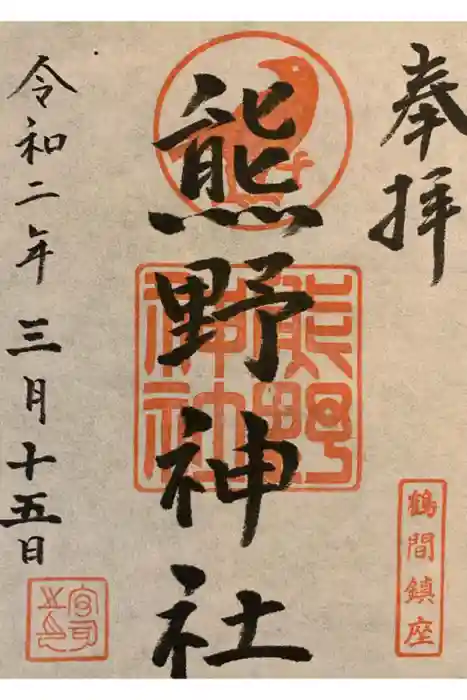 奉拝
鶴間鎮座
熊野神社
熊野神社
令和二年 三月十五日